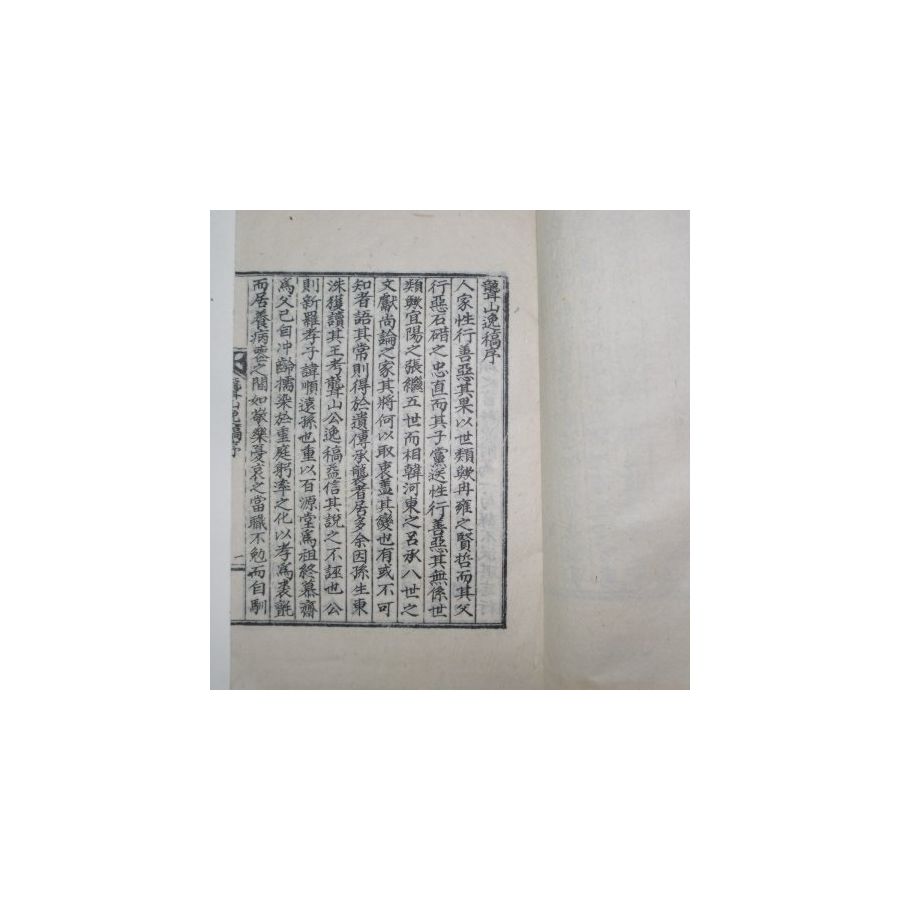 聾山逸稿序
人家性行善惡其果以世類歟冉雍之賢哲而其父
行惡石碏之忠直而其子黨逆性行善惡其無係世
類歟宜陽之張繼五世而相韓河東之呂承八世之
文獻尚論之家其將何以取衷盖其變也有或不可
知者語其常則得於遺傳承襲者居多余因孫生東
洙獲讀其王考聾山公逸稿益信其說之不誣也公
則新羅孝子諱順遠孫也重以百源堂爲祖終慕齋
爲父已自冲齡擩染於重庭躬率之化以孝爲裘氈
而居養病喪之間如嚴樂憂哀之當職不勉而自馴
聾山逸稿序 一